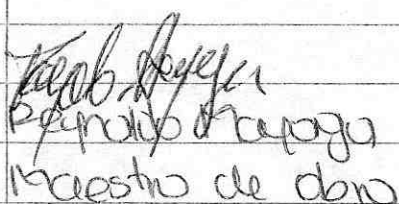 Reynaldo Mayorga
Maestro de obra